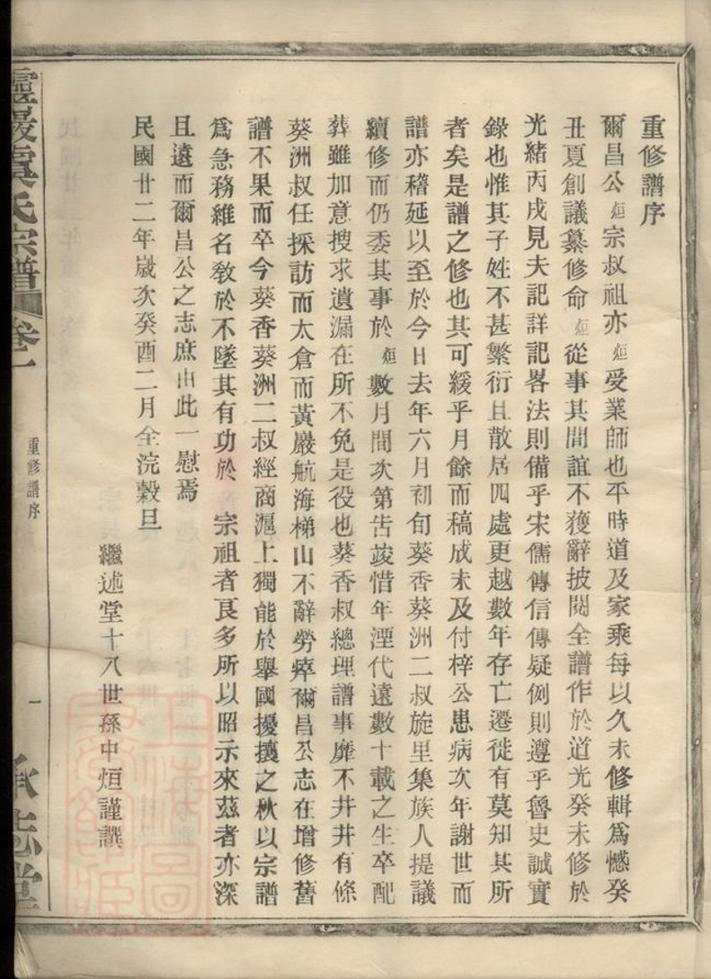 重修譜序
爾昌公烜宗叔祖亦烜受業師也平時道及家乘每以久未修輯爲憾癸
丑夏創議纂修命烜從事其間誼不獲辭披閱全譜作於道光癸未修於
光緒丙戌見夫記詳記畧法則備乎宋儒傳信傳疑例則遵乎魯史誠實
錄也惟其子姓不甚繁衍且散居四處更越數年存亡遷徙有莫知其所
者矣是譜之修也其可緩乎月餘而稿成未及付梓公患病次年謝世而
譜亦稽延以至於今日去年六月初旬葵香葵洲二叔旋里集族人提議
續修而仍委其事於烜數月間次第告竣惜年湮代遠數十載之生卒配
葬雖加意搜求遺漏在所不免是役也葵香叔總理譜事靡不井井有條
葵洲叔任採訪而太倉而黃巖航海梯山不辭勞瘁爾昌公志在增修舊
譜不果而卒今葵香葵洲二叔經商滬上獨能於舉國擾攘之秋以宗譜
爲急務維名教於不墜其有功於 宗祖者良多所以昭示來茲者亦深
且遠而爾昌公之志庶由此一慰焉
民國廿二年歲次癸酉二月全浣穀旦
繼述堂十八世孫中烜謹譔
靈巖虞氏宗譜 卷一 重修譜序 一 承志堂